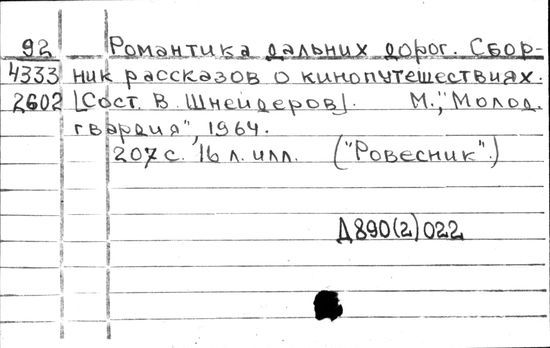 92 Романтика дальних дорог. Сбор-
4333 ник рассказов о кинопутешествиях.
2602 [Сост. В. Шнейдеров]. М., "Молод.
гвардия", 1964.
207 с. 16 л. илл. ("Ровесник".)
Д890(2)022